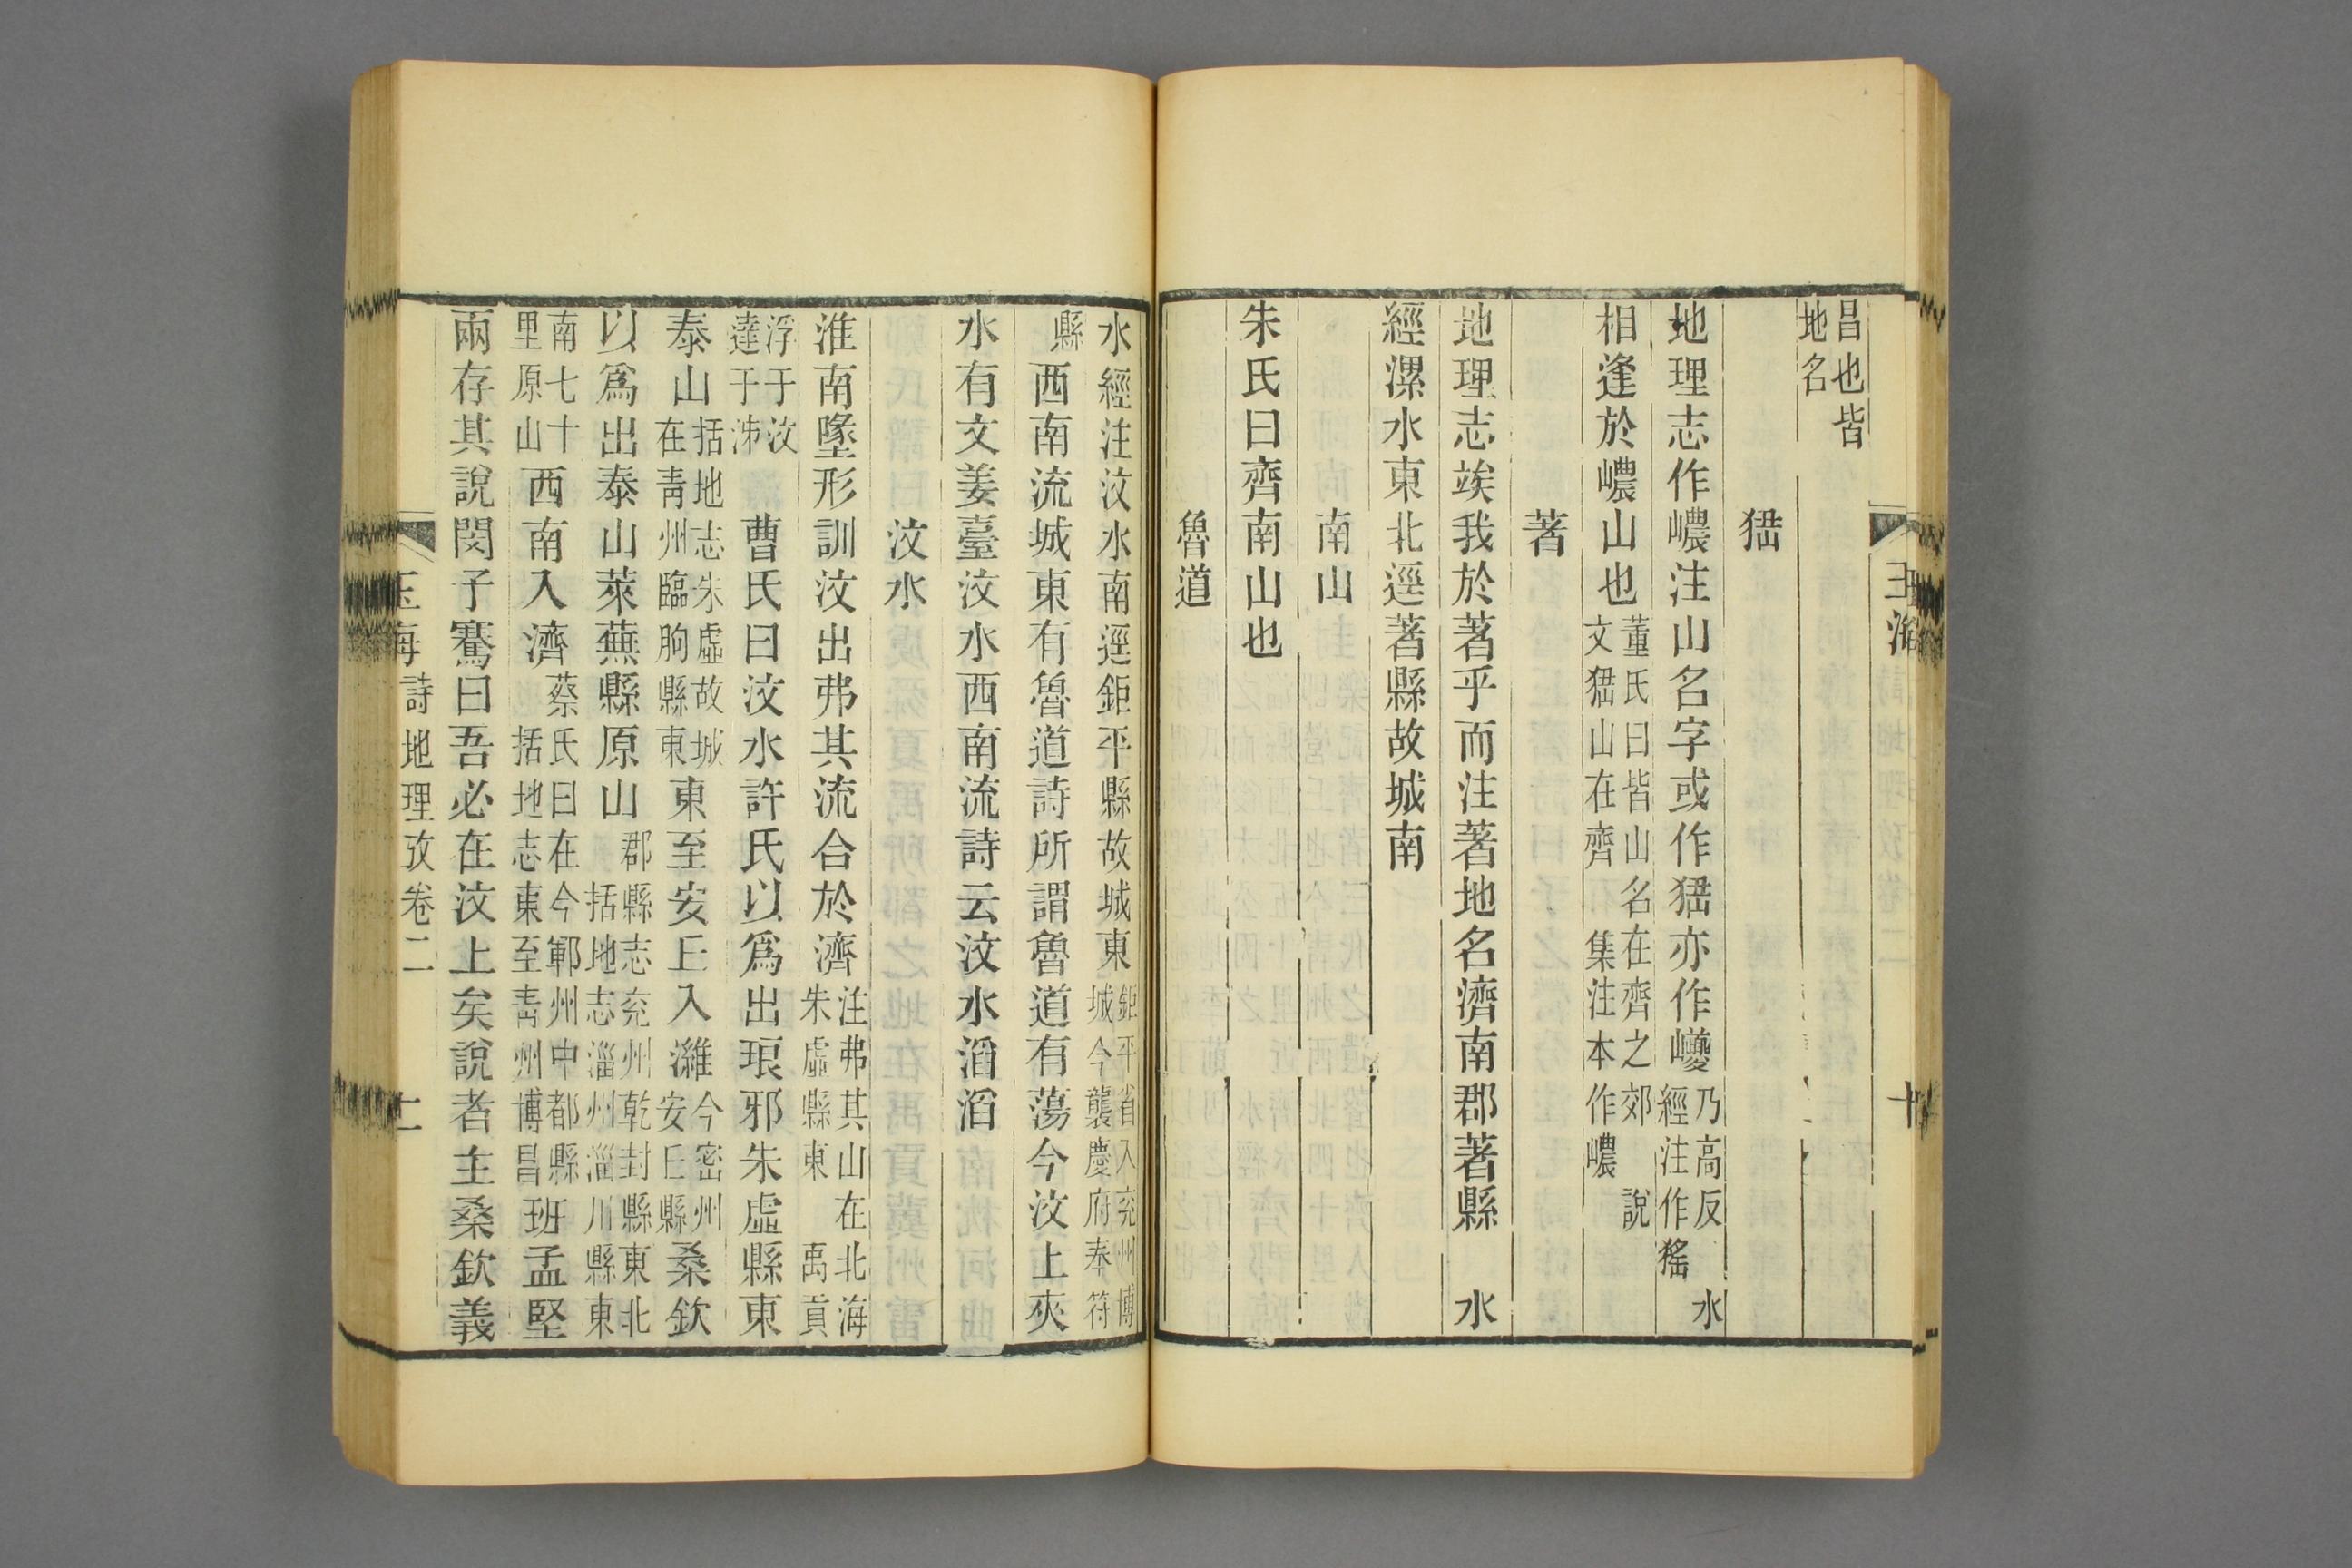 昌也皆
地名
猺
地理志作巙注山名字或作猺亦作巎乃高反水
經注作猺
相逢於巙山也董氏曰皆山名在齊之郊說
文猺山在齊集注本作巙
著
地理志竢我於著乎而注著地名濟南郡著縣水
經漯水東北逕著縣故城南
南山
朱氏曰齊南山也
魯道
水經注汶水南逕鉅平縣故城東鉅平省入兖州博
城今襲慶府奉符
縣西南流城東有魯道詩所謂魯道有蕩今汶上夾
水有文姜臺汶水西南流詩云汶水滔滔
汶水
淮南墬形訓汶出弗其流合於濟注弗其山在北海
朱虛縣東禹貢
浮于汶
達于泲曹氏曰汶水許氏以爲出琅邪朱虛縣東
泰山括地志朱虛故城
在青州臨朐縣東東至安丘入濰今密州
安丘縣桑欽
以爲出泰山萊蕪縣原山郡縣志兖州乾封縣東北
括地志淄州淄川縣東
南七十
里原山西南入濟蔡氏曰在今鄆州中都縣
括地志東至青州博昌班孟堅
兩存其說閔子騫曰吾必在汶上矣說者主桑欽義
玉海詩地理攷卷二